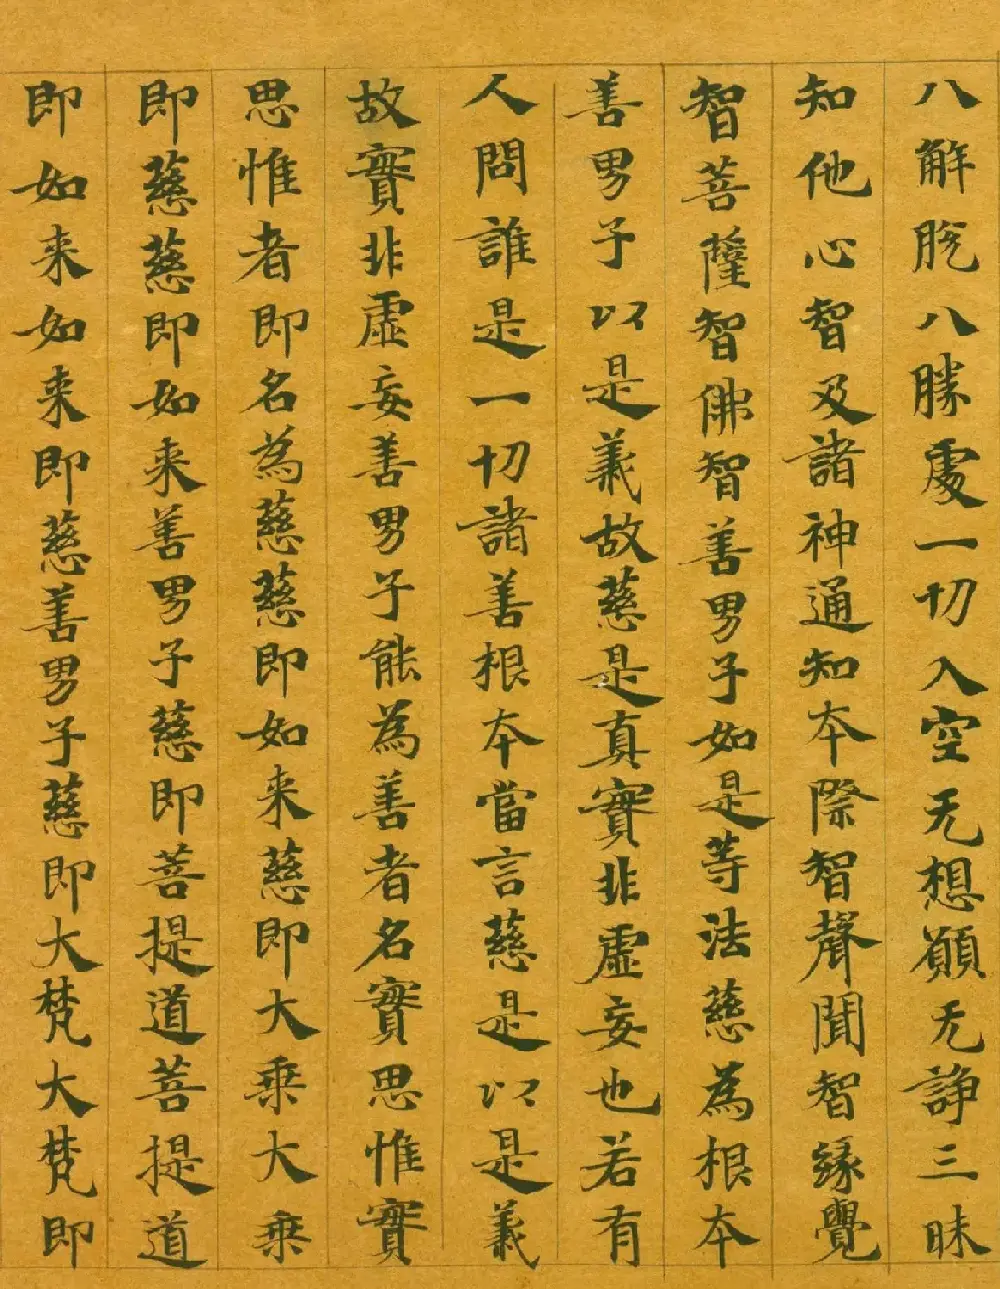 八解脫八勝處一切入空无想願无諍三昧
知他心智及諸神通知本際智聲聞智緣覺
智菩薩智佛智善男子如是等法慈為根本
善男子以是義故慈是真實非虛妄也若有
人問誰是一切諸善根本當言慈是以是義
故實非虛妄善男子能為善者名實思惟實
思惟者即名為慈慈即如来慈即大乘大乘
即慈慈即如来善男子慈即菩提道菩提道
即如来如来即慈善男子慈即大梵大梵即